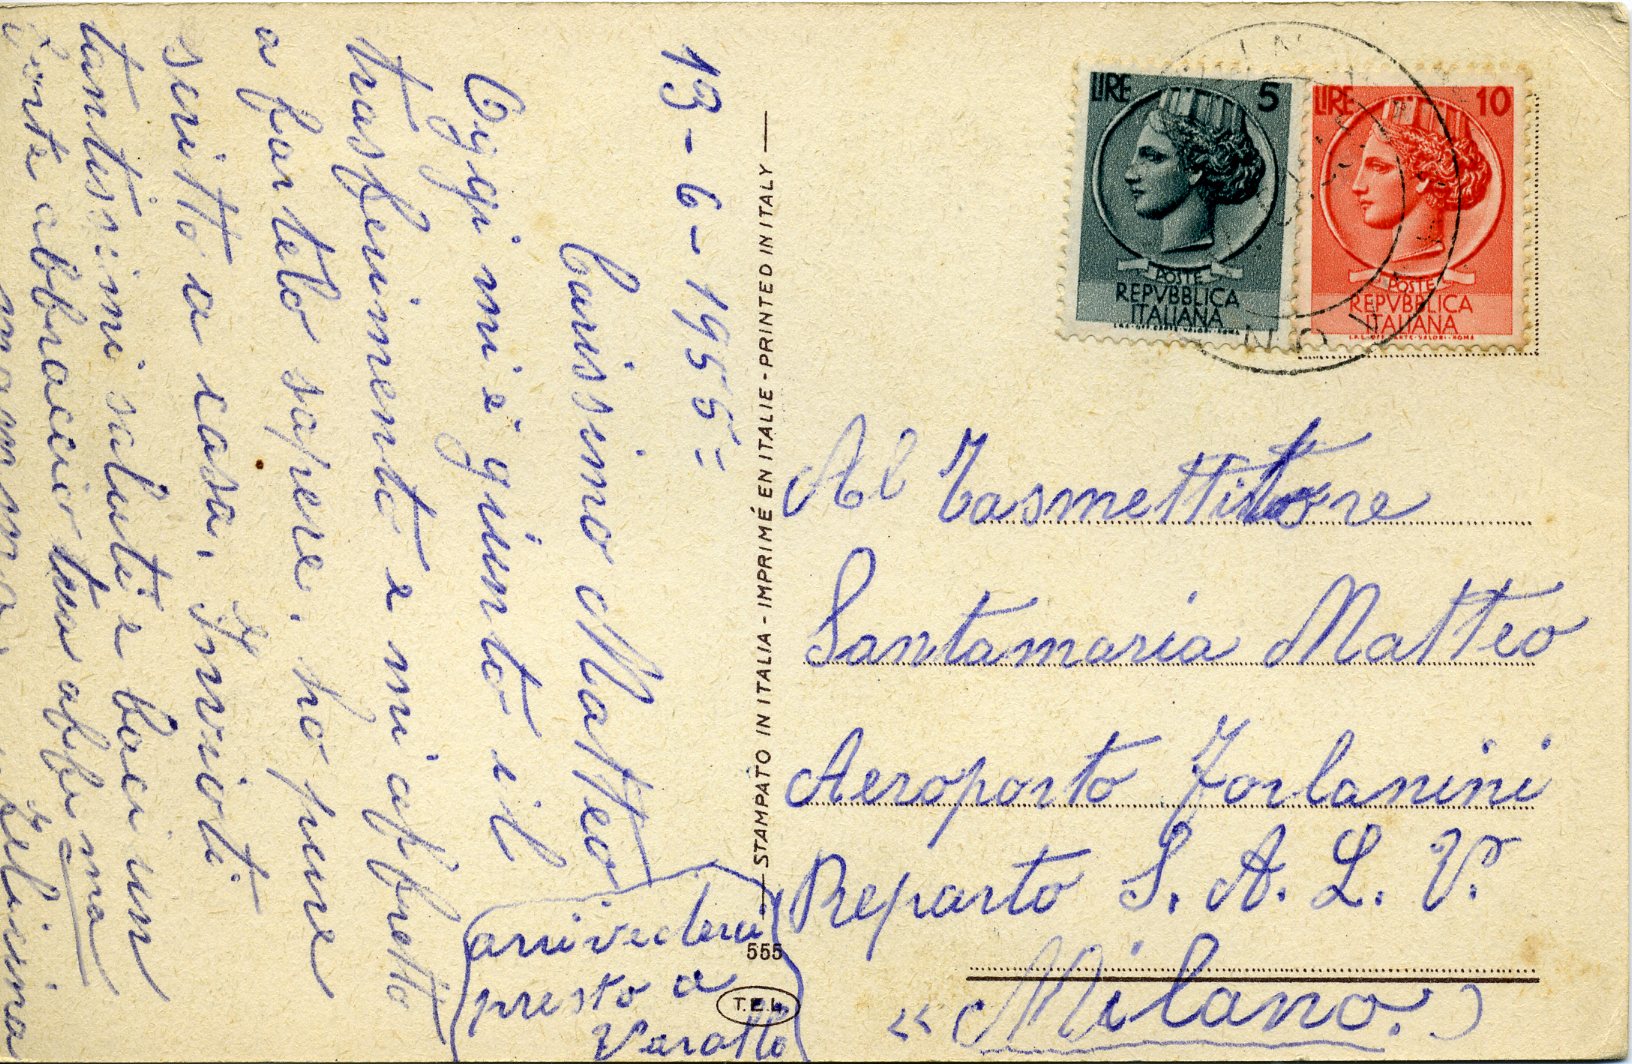 13-6-1955=
Carissimo Matteo
Oggi mi è giunto il
trasferimento e mi affretto
a farvelo sapere. ho pure
scritto a casa. Invioti
tantissimi saluti e baci un
forte abbraccio tuo
mamma
arrivederci
presto a
STAMPATO IN ITALIA - IMPRIMÉ EN ITALIE - PRINTED IN ITALY
555
T.E.L.
LIRE 5
POSTE
REPVBBLICA
ITALIANA
LIRE 10
POSTE
REPVBBLICA
ITALIANA
Al Tasmettitore
Santamaria Matteo
Aeroporto Forlanini
Reparto S. A. L. V.
«Milano.»